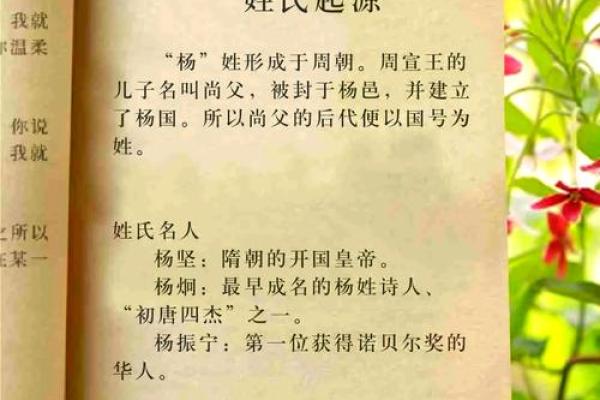 我就
你温柔
你说
我就
之所以
在某一
姓氏起源
“杨”姓形成于周朝。周宣王的
儿子名叫尚父，被封于杨邑，并建立
了杨国。所以尚父的后代便以国号为
姓。
姓氏名人
杨坚：隋朝的开国皇帝。
杨炯：最早成名的杨姓诗人、
“初唐四杰”之一。
杨振宁：第一位获得诺贝尔奖的
华人。